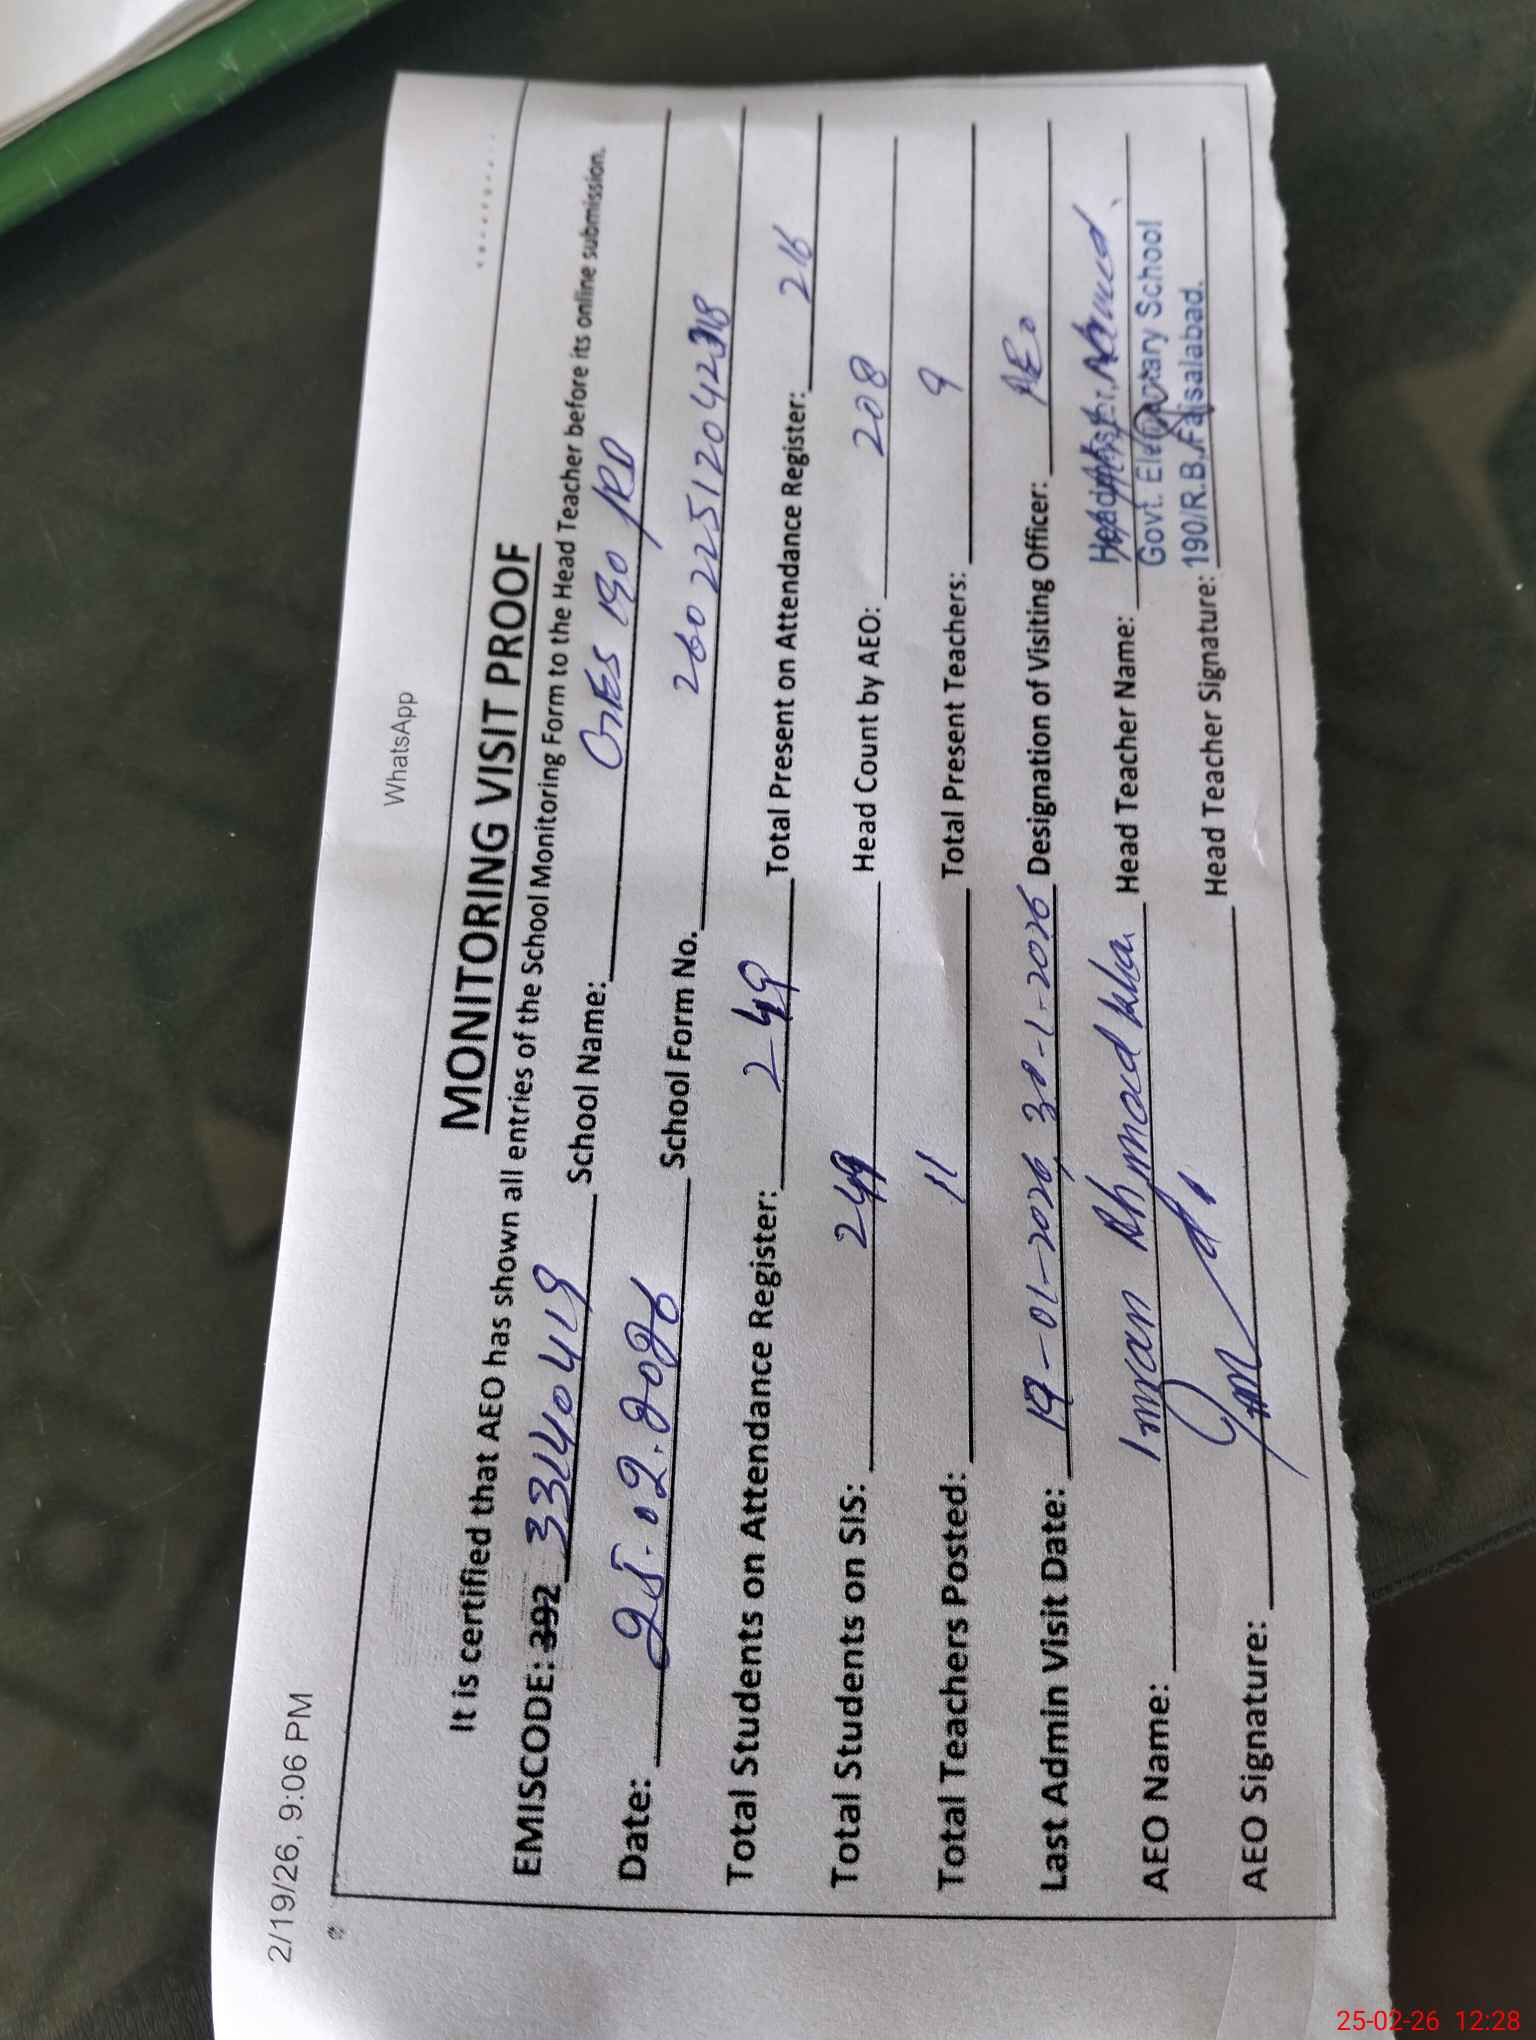 2/19/26, 9:06 PM WhatsApp
MONITORING VISIT PROOF
It is certified that AEO has shown all entries of the School Monitoring Form to the Head Teacher before its online submission.
EMISCODE: 392 33140419 School Name: GES 190 RB
Date: 25.02.2026 School Form No. 2602251204238
Total Students on Attendance Register: 249 Total Present on Attendance Register: 216
Total Students on SIS: 249 Head Count by AEO: 208
Total Teachers Posted: 11 Total Present Teachers: 9
Last Admin Visit Date: 19-01-2026, 30-1-2026 Designation of Visiting Officer: AEO
AEO Name: Imran Ahmad Khan Head Teacher Name:
Headmaster
Govt. Elementary School
190/R.B, Faisalabad.
AEO Signature: Head Teacher Signature:
25-02-26 12:28